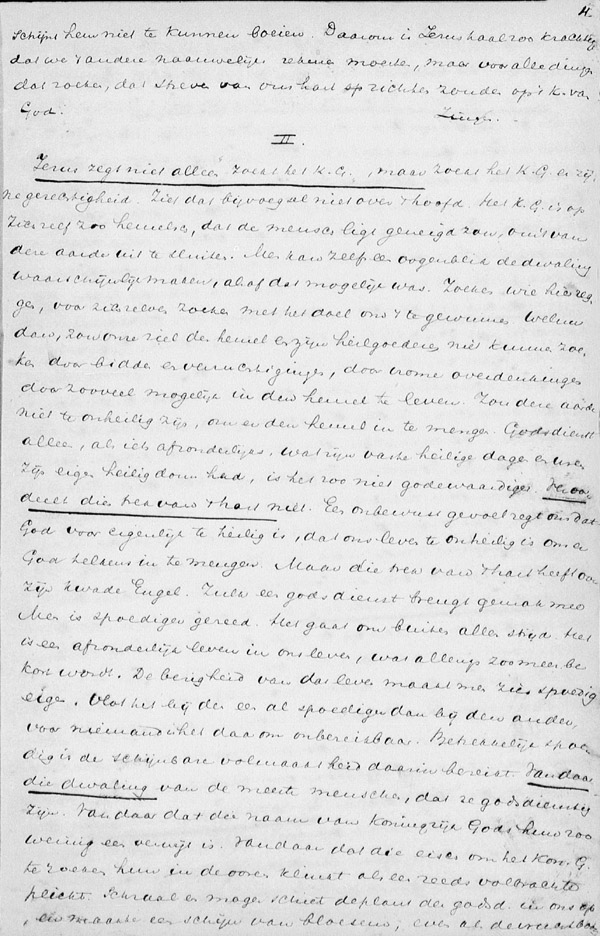 4.
schijnt hem niet te kunnen boeien. Daarom is Jezus' taal zoo krachtig
dat we 't andere nauwelijks rekenen moeten, maar voor alle dingen
dat zoeken, dat streven van ons hart richten zonder op 't K. van
God.
II
Jezus zegt niet alleen zoekt het K.G., maar zoekt het K.G. en zij-
ne gerechtigheid. Ziet dat bijvoegsel niet over 't hoofd. Het K.G. is op
zich zelf zoo hemelsch, dat de mensch ligt geneigd zou, om 't van
deze aarde uit te sluiten. Men kan zelf een oogenblik de dwaling
waarschijnlijk maken, alsof dat mogelijk was. Zoeken, wie hier zeg-
gen, voor zichzelven zoeken met het doel om 't te gewinnen. Welnu
dan, zou onze ziel den hemel en zijn heilgoederen niet kunnen zoe-
ken door bidden en door vrome overdenkingen
door zooveel mogelijk in den hemel te leven. Zou deze aarde
niet te onheilig zijn, om er den hemel in te mengen. Godsdienst
alleen, als iets afzonderlijks, wat zijn vaste heilige dagen en uren
zijn eigen heiligdom had, is het zoo niet godewaardiger. Veroor-
deelt die trek van 't hart niet. Een onbewust gevoel zegt ons dat
God voor eigenlijk te heilig is, dat ons leven te onheilig is om er
God telkens in te mengen. Maar die trek van 't hart heeft ook
zijn kwade Engel. Zulk een godsdienst brengt gemak mee
Men is spoediger gereed. Het gaat om buiten allen strijd. Het
is een afzonderlijk leven in ons leven, wat allengs zoo meer be-
kort wordt. De bezigheid van dat leven maakt men zich spoedig
eigen. Vlot het bij den een al spoediger dan bij den ander,
voor niemand is het daarom onbereikbaar. Betrekkelijk spoe-
dig is de schijnbare volmaaktheid daarin bereikt. Van daar
die dwaling van de meeste menschen, dat ze godsdienstig
zijn. Van daar dat die naam van Koningrijk Gods hun zoo
weinig een verwijt is. Van daar dat die eisch om het Kon. G.
te zoeken hun in de ooren klinkt als een reeds volbrachte
plicht. Schraal en mager schiet de plant der godsd. in ons op
, en maakte een schijn van bloesem, even als de